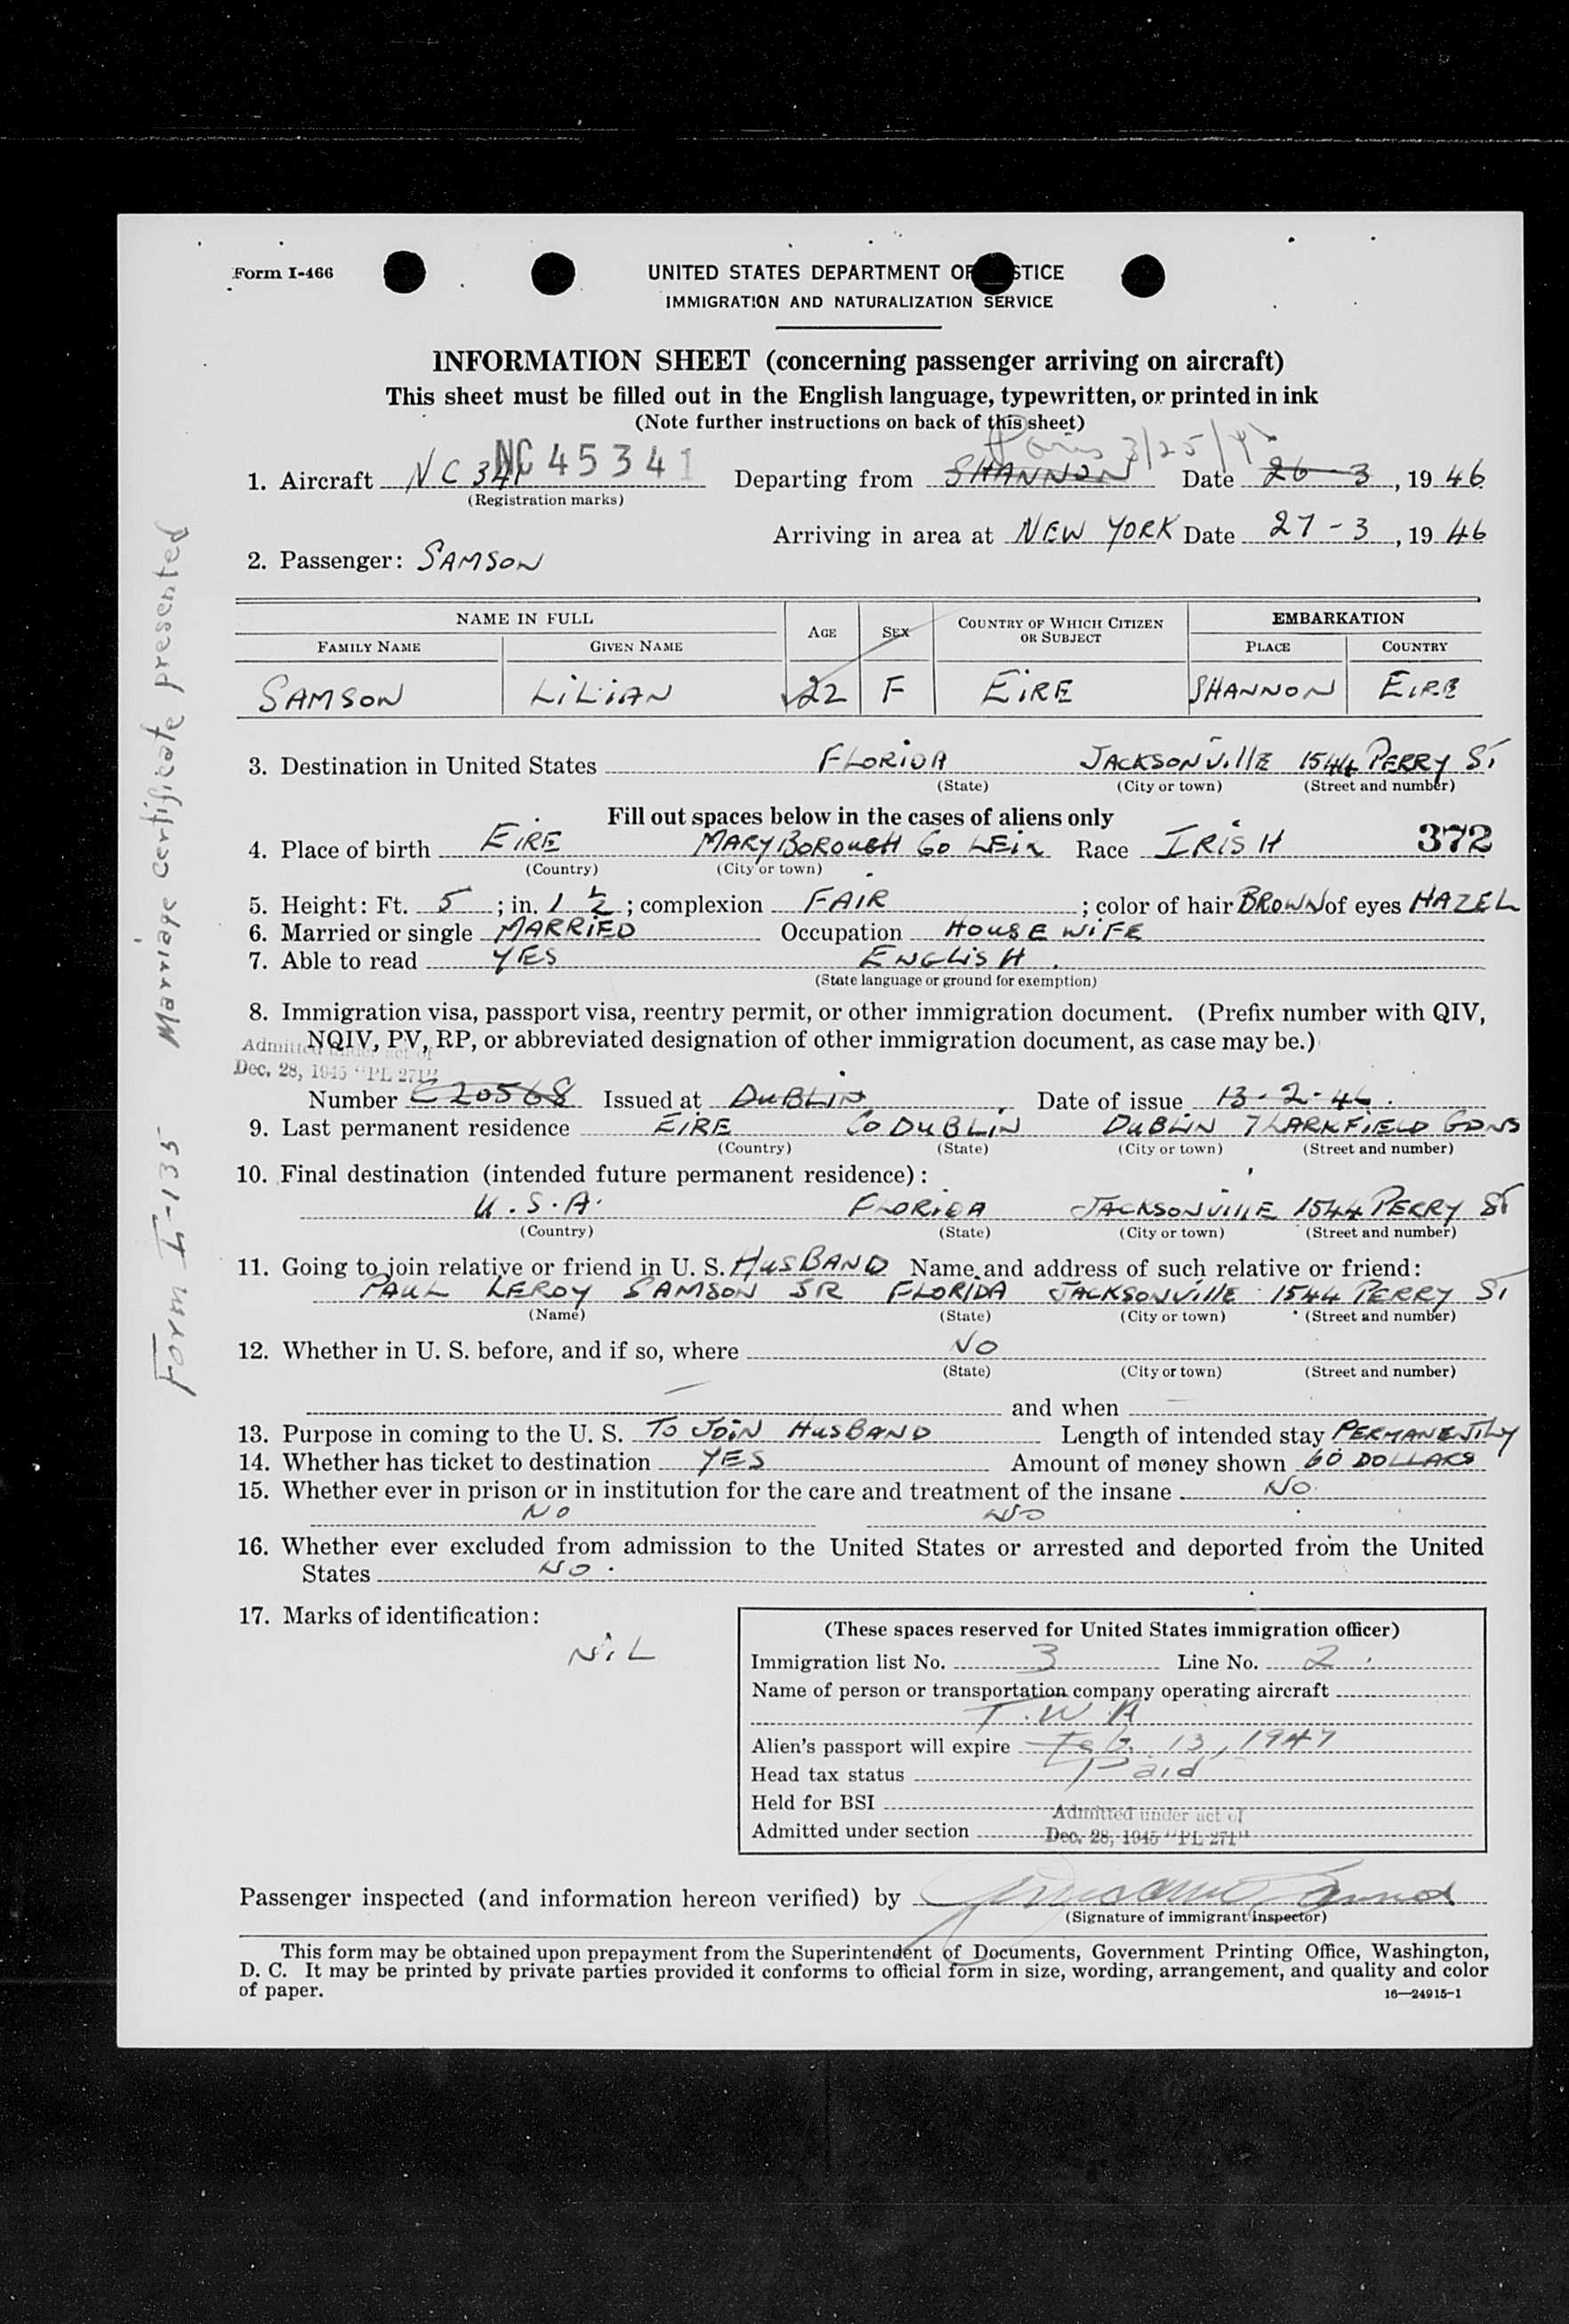 Form I-466
UNITED STATES DEPARTMENT OF JUSTICE
IMMIGRATION AND NATURALIZATION SERVICE
INFORMATION SHEET (concerning passenger arriving on aircraft)
This sheet must be filled out in the English language, typewritten, or printed in ink
(Note further instructions on back of this sheet)
Paris 3/25/
1. Aircraft NC 341 NC 45341 Departing from SHANNON Date 26 - 3, 19 46
(Registration marks)
Arriving in area at NEW YORK Date 27 - 3, 19 46
2. Passenger: SAMSON
NAME IN FULL AGE SEX COUNTRY OF WHICH CITIZEN OR SUBJECT EMBARKATION
FAMILY NAME GIVEN NAME PLACE COUNTRY
SAMSON LILIAN 22 F EIRE SHANNON EIRE
3. Destination in United States FLORIDA JACKSONVILLE 1544 PERRY ST
(State) (City or town) (Street and number)
Fill out spaces below in the cases of aliens only
4. Place of birth EIRE MARYBOROUGH CO LEIX Race IRISH 372
(Country) (City or town)
5. Height: Ft. 5; in. 1 1/2; complexion FAIR; color of hair BROWN of eyes HAZEL
6. Married or single MARRIED Occupation HOUSE WIFE
7. Able to read YES ENGLISH.
(State language or ground for exemption)
8. Immigration visa, passport visa, reentry permit, or other immigration document. (Prefix number with QIV,
NQIV, PV, RP, or abbreviated designation of other immigration document, as case may be.)
Admitted under act of
Dec. 28, 1945 "PL 271"
Number C 20568 Issued at DUBLIN Date of issue 13-2-46.
9. Last permanent residence EIRE CO DUBLIN DUBLIN 7 LARKFIELD GDNS
(Country) (State) (City or town) (Street and number)
10. Final destination (intended future permanent residence):
U.S.A. FLORIDA JACKSONVILLE 1544 PERRY ST
(Country) (State) (City or town) (Street and number)
11. Going to join relative or friend in U. S. HUSBAND Name and address of such relative or friend:
PAUL LEROY SAMSON SR FLORIDA JACKSONVILLE 1544 PERRY ST
(Name) (State) (City or town) (Street and number)
12. Whether in U. S. before, and if so, where NO
(State) (City or town) (Street and number)
and when
13. Purpose in coming to the U. S. TO JOIN HUSBAND Length of intended stay PERMANENTLY
14. Whether has ticket to destination YES Amount of money shown 60 DOLLARS
15. Whether ever in prison or in institution for the care and treatment of the insane NO
NO NO
16. Whether ever excluded from admission to the United States or arrested and deported from the United
States NO.
17. Marks of identification:
NIL
(These spaces reserved for United States immigration officer)
Immigration list No. 3 Line No. 2
Name of person or transportation company operating aircraft
T.W.A
Alien's passport will expire Feb. 13, 1947
Head tax status Paid
Held for BSI
Admitted under act of
Admitted under section Dec. 28, 1945 "PL 271"
Passenger inspected (and information hereon verified) by
(Signature of immigrant inspector)
This form may be obtained upon prepayment from the Superintendent of Documents, Government Printing Office, Washington,
D. C. It may be printed by private parties provided it conforms to official form in size, wording, arrangement, and quality and color
of paper.
16—24915-1
Form I-135 Marriage certificate presented